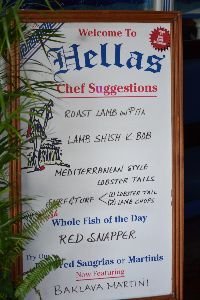 Welcome To
Hellas
Chef Suggestions
ROAST LAMB W/
LAMB SHISH K BOB
MEDITERRANEAN STYLE
LOBSTER TAILS
SURF & TURF < (1) LOBSTER TAIL
(2) LAMB CHOPS
Whole Fish of the Day
RED SNAPPER
Try Our
red Sangrias or Martinis
Now Featuring
BAKLAVA MARTINI